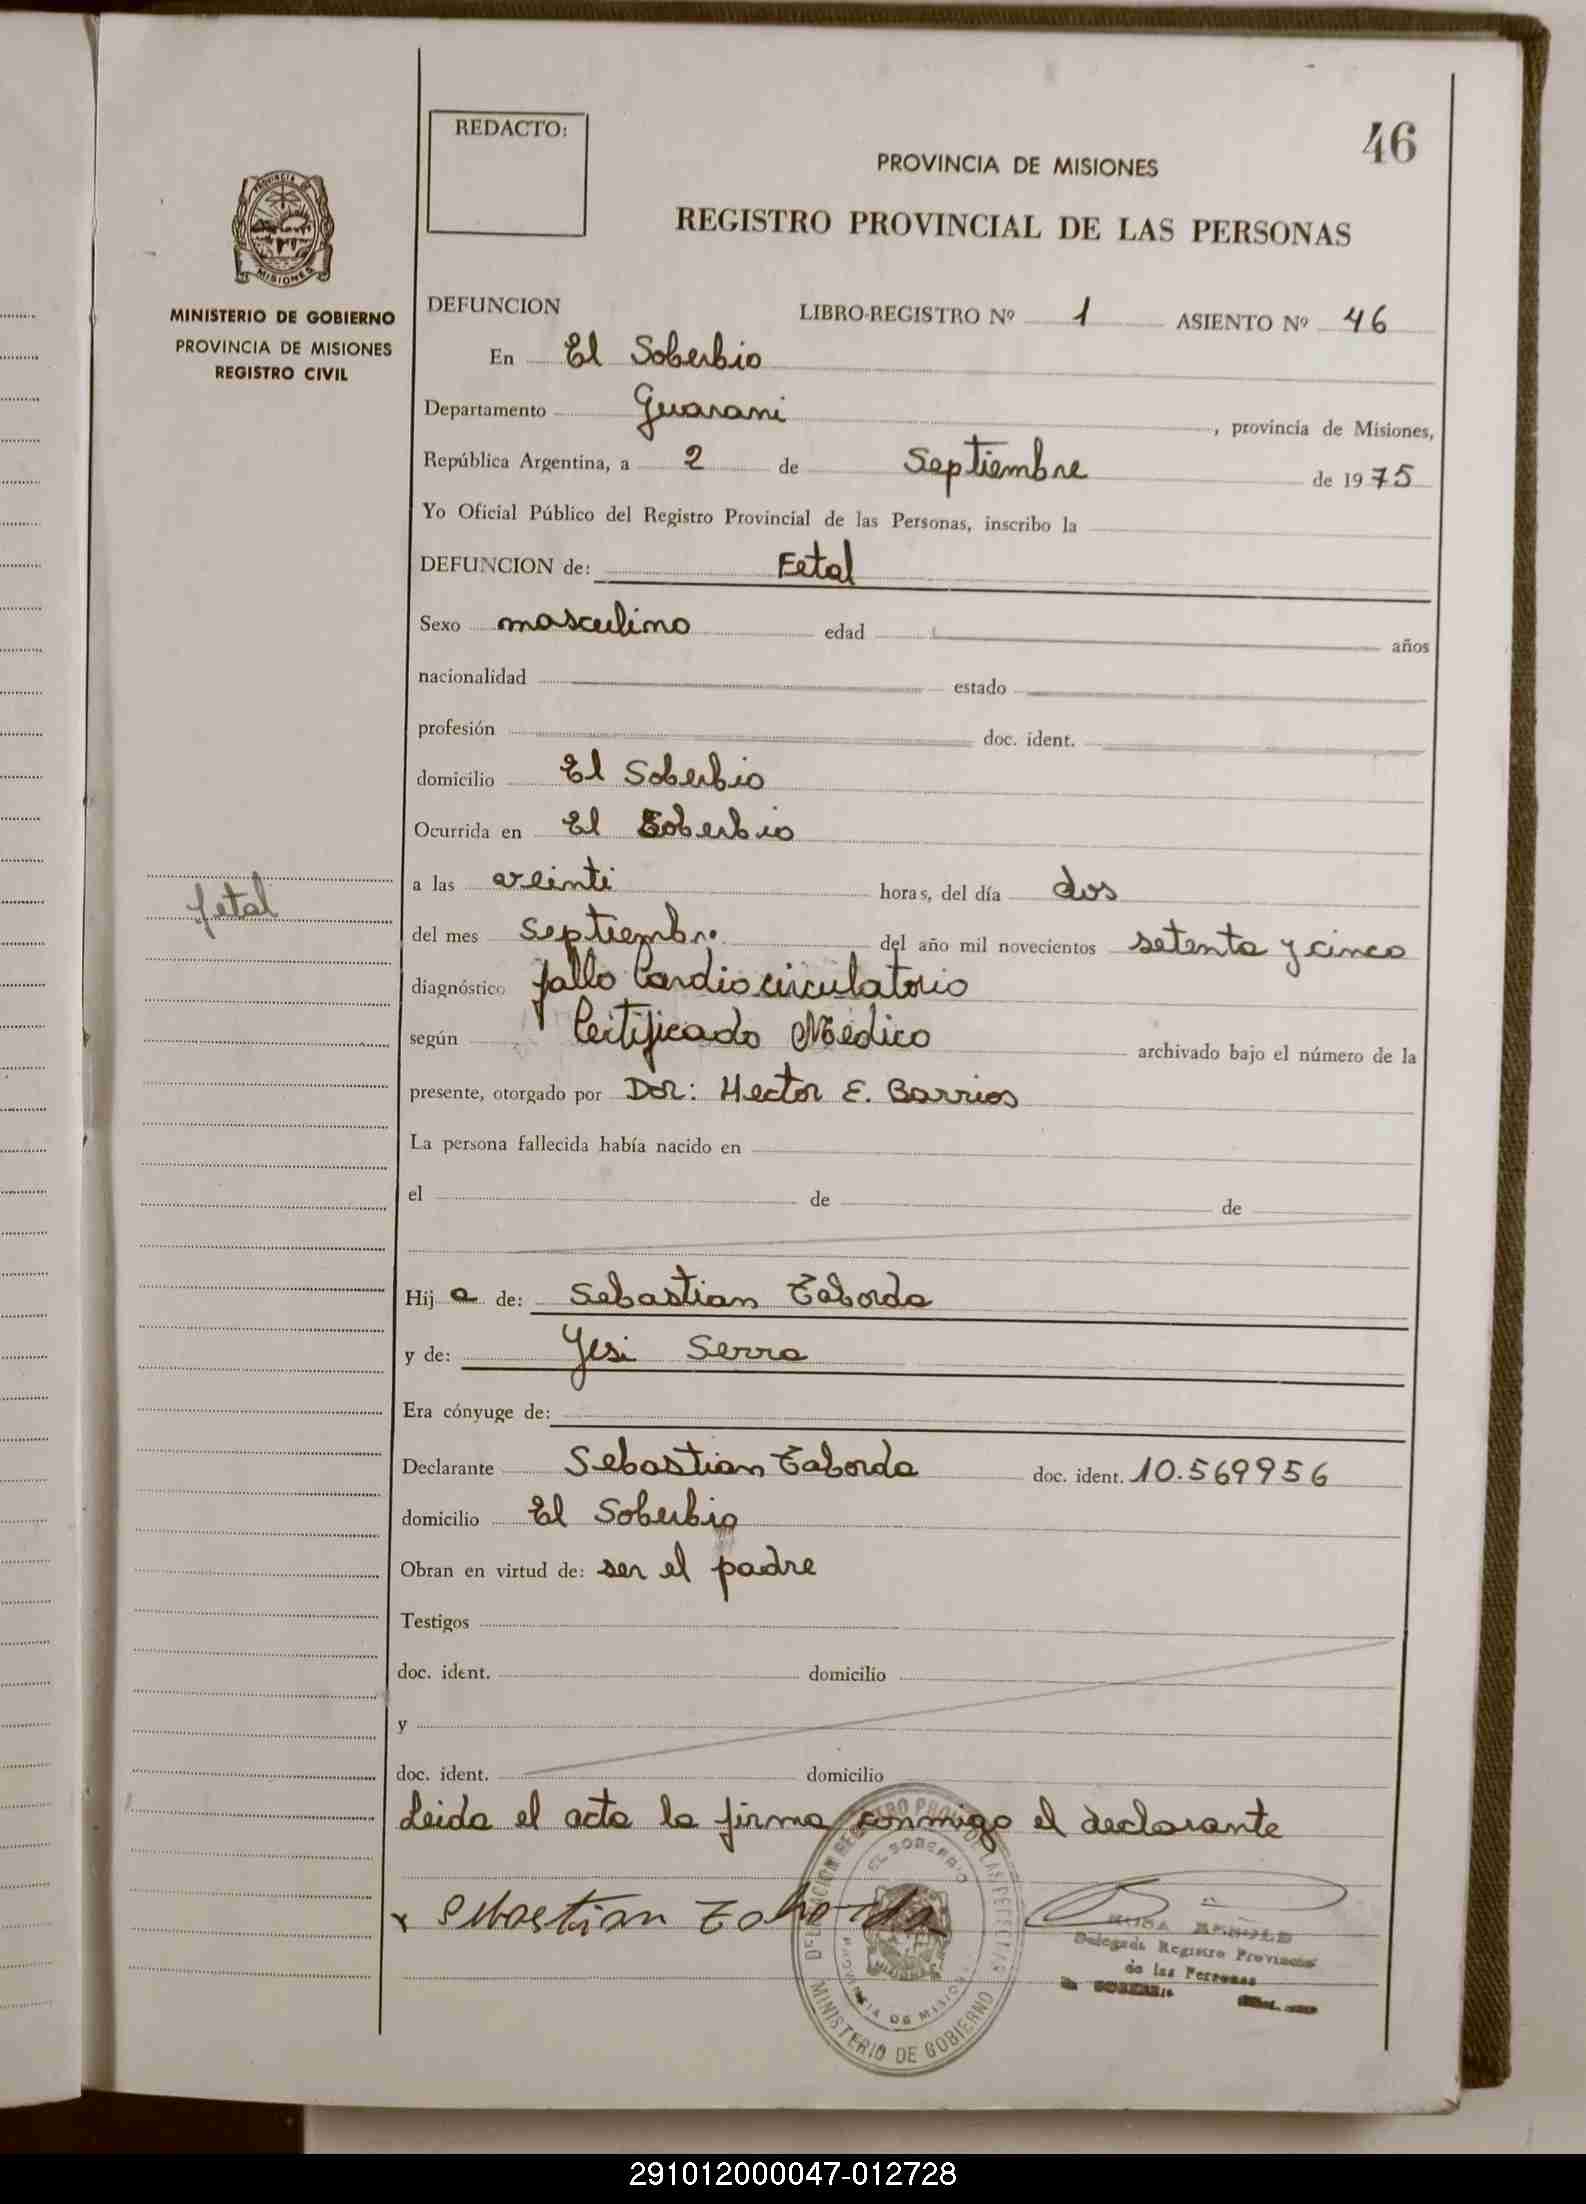 46
REDACTO:
PROVINCIA DE MISIONES
REGISTRO PROVINCIAL DE LAS PERSONAS
PROVINCIA DE
MISIONES
MINISTERIO DE GOBIERNO
PROVINCIA DE MISIONES
REGISTRO CIVIL
DEFUNCION LIBRO-REGISTRO Nº 1 ASIENTO Nº 46
En El Soberbio
Departamento Guarani, provincia de Misiones,
República Argentina, a 2 de Septiembre de 1975
Yo Oficial Público del Registro Provincial de las Personas, inscribo la
DEFUNCION de: Fetal
Sexo masculino edad años
nacionalidad estado
profesión doc. ident.
domicilio El Soberbio
Ocurrida en El Soberbio
a las veinti horas, del día dos
fetal
del mes Septiembre del año mil novecientos setenta y cinco
diagnóstico fallo Cardio circulatorio
según Certificado Médico archivado bajo el número de la
presente, otorgado por Dor: Hector E. Barrios
La persona fallecida había nacido en
el de de
Hij a de: Sebastian Taborda
y de: Yesi Serra
Era cónyuge de:
Declarante Sebastian Taborda doc. ident. 10.569956
domicilio El Soberbio
Obran en virtud de: ser el padre
Testigos
doc. ident. domicilio
y
doc. ident. domicilio
Leida el acta la firma conmigo el declarante
x Sebastian Taborda
DELEGACION REGISTRO PROV. DE LAS PERSONAS
EL SOBERBIO
PROVINCIA DE MISIONES
MINISTERIO DE GOBIERNO
Delegado Registro Provincial
de las Personas
SOBERBIO
291012000047-012728